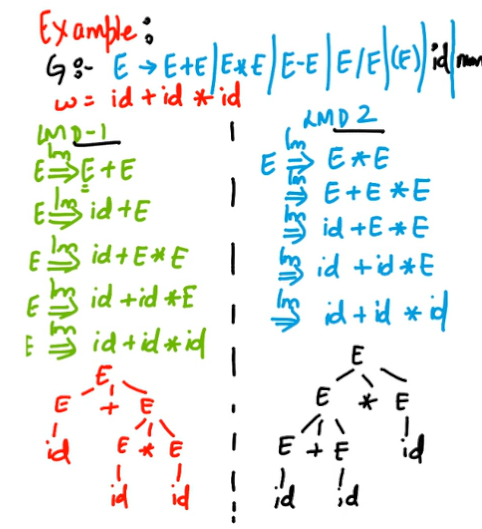 Example:
G:- E → E+E|E*E|E-E|E/E|(E)|id|num
w = id + id * id
LMD-1
E lm⇒ E + E
E lm⇒ id + E
E lm⇒ id + E * E
E lm⇒ id + id * E
E lm⇒ id + id * id
E
E + E
id E * E
id id
LMD 2
E lm⇒ E * E
lm⇒ E + E * E
lm⇒ id + E * E
lm⇒ id + id * E
lm⇒ id + id * id
E
E * E
E + E id
id id